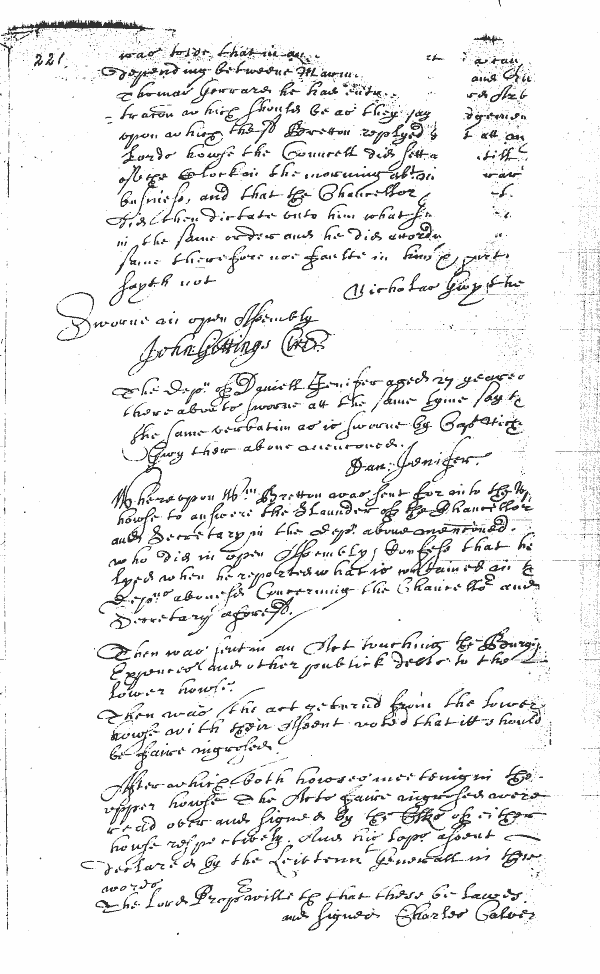 221
was to be that in an
depending betweene Marm
Thomas Gerrard he had entr and
tracon which should be as they say
upon which the sd Bretton replyed t att an
Lords howse the Councell did sett
of the Clock in the morning
busines, and that the Chancellor
did then dictate unto him what
in the same order and he did
same therefore noe faulte in him
sayth not
Nicholas Gwyther
Sworne in open Assembly
John Gittings Clre
The Depn of Daniell Jenifer aged 27 yeares
there abouts sworne att the same tyme sayth
the same verbatim as is sworne by Capt Nich
Gwyther above menconed.
Dan: Jenifer
Whereupon Wm Bretton was sent for into the
howse to answere the slaunder of the Chancellor
and Secretary in the Depns above menconed.
who did in open Assembly, Confess that he
lyed when he reported what is contained in
Depns abovesd Concerning the Chancellor and
Secretary aforesd.
Then was sent in an Act touching the Burg
Expences and other publick debts to the
lower howse.
Then was the act returnd from the lower
howse with their Assent voted that itt should
be faire ingrossed
After which both howses meeteing in the
upper howse The Acts faire ingrossed were
read over and signed by the Clks of either
howse respectively. And his Lops Assent
declared by the Leittennt Generall in these
words.
The Lord Propr willeth that these be lawes.
and signed Charles Calver